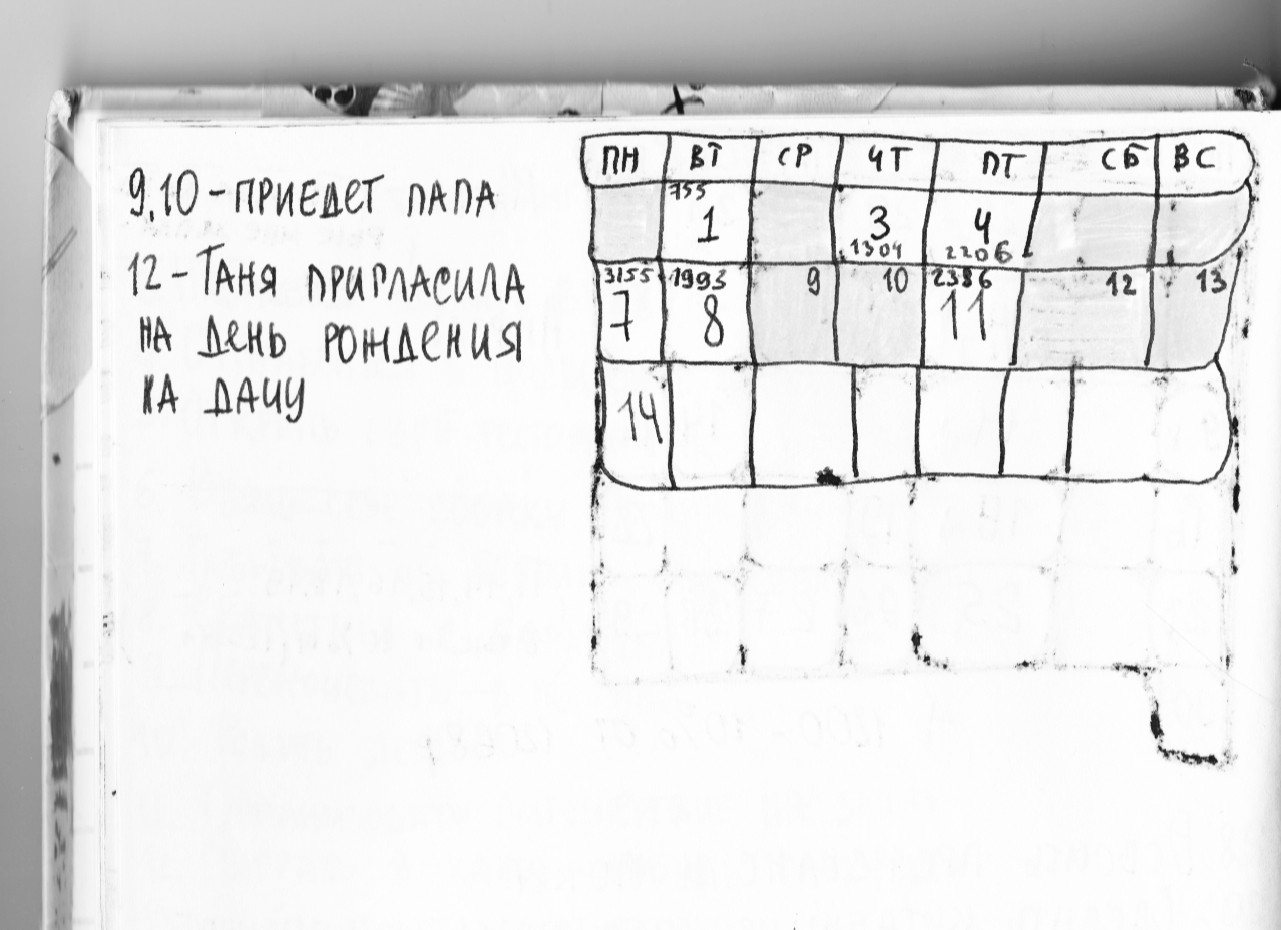 9,10 - ПРИЕДЕТ ПАПА
12 - ТАНЯ ПРИГЛАСИЛА
НА ДЕНЬ РОЖДЕНИЯ
НА ДАЧУ
ПН ВТ СР ЧТ ПТ СБ ВС
755
1 3 4
1304 2206
3155 1993 9 10 2386 12 13
7 8 11
14